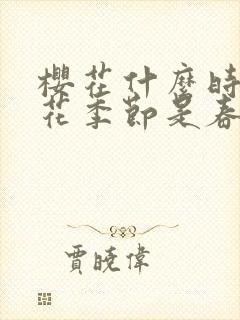 櫻花什麼時
花季節是春
賈曉偉